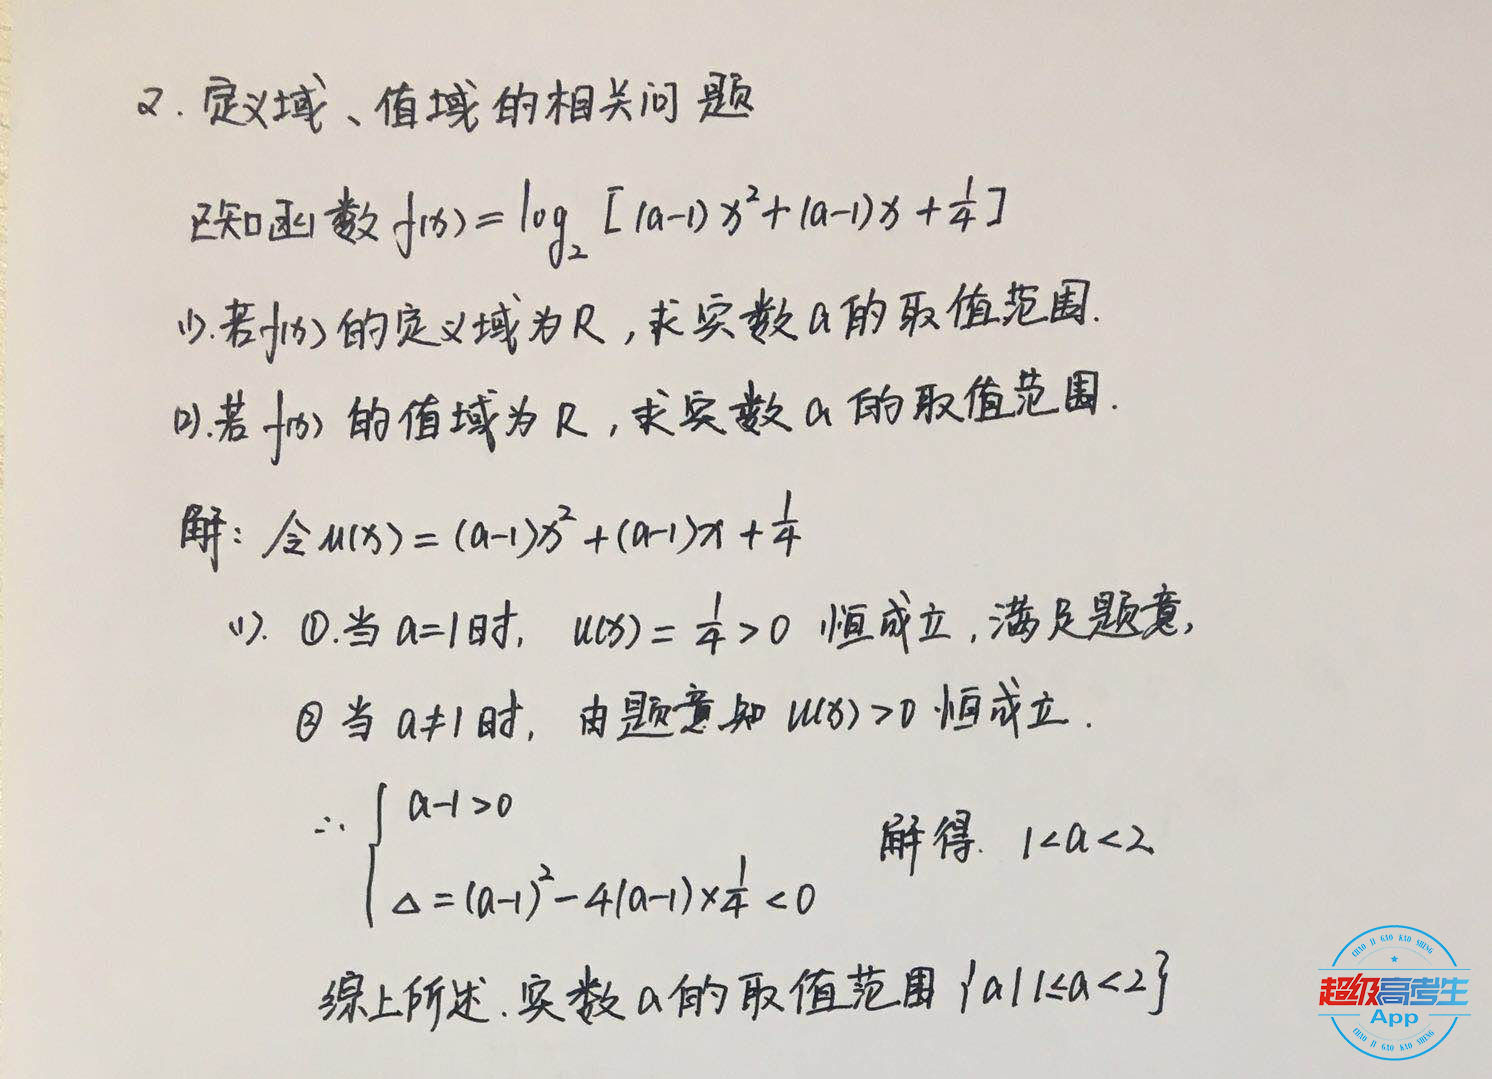 2. 定义域、值域的相关问题
已知函数f(x)=log₂[(a-1)x²+(a-1)x+1/4]
(1).若f(x)的定义域为R,求实数a的取值范围.
(2).若f(x)的值域为R,求实数a的取值范围.
解:令u(x)=(a-1)x²+(a-1)x+1/4
(1). ①.当a=1时, u(x)=1/4>0 恒成立,满足题意,
②当a≠1时, 由题意知u(x)>0恒成立.
∴ { a-1>0
△=(a-1)²-4(a-1)×1/4<0 解得. 1<a<2
综上所述.实数a的取值范围{a|1≤a<2}
CHAO JI GAO KAO SHENG
超级高考生
App
CHAO JI GAO KAO SHENG